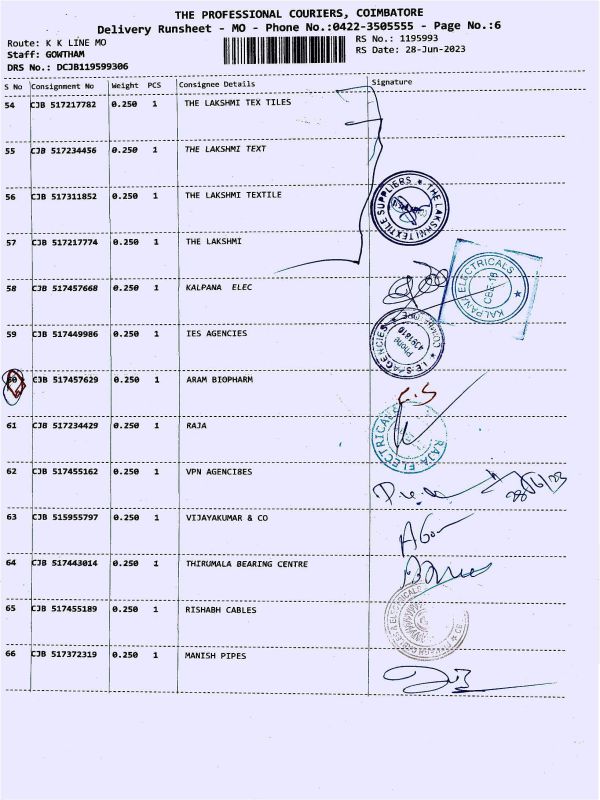 THE PROFESSIONAL COURIERS, COIMBATORE
Delivery Runsheet - MO - Phone No.:0422-3505555 - Page No.:6
Route: K K LINE MO
RS No.: 1195993
Staff: GOWTHAM
RS Date: 28-Jun-2023
DRS No.: DCJB119599306
S No Consignment No Weight PCS Consignee Details Signature
54 CJB 517217782 0.250 1 THE LAKSHMI TEX TILES
55 CJB 517234456 0.250 1 THE LAKSHMI TEXT
56 CJB 517311852 0.250 1 THE LAKSHMI TEXTILE
THE LAKSHMI TEXTILE SUPPLIERS
57 CJB 517217774 0.250 1 THE LAKSHMI
58 CJB 517457668 0.250 1 KALPANA ELEC
KALPANA ELECTRICALS
CBE-18
59 CJB 517449986 0.250 1 IES AGENCIES
I.E.S AGENCIES
Phone
4391810
60 CJB 517457629 0.250 1 ARAM BIOPHARM
C.S
61 CJB 517234429 0.250 1 RAJA
RAJA ELECTRICAL
62 CJB 517455162 0.250 1 VPN AGENCI8ES
28/6/23
63 CJB 515955797 0.250 1 VIJAYAKUMAR & CO
64 CJB 517443014 0.250 1 THIRUMALA BEARING CENTRE
65 CJB 517455189 0.250 1 RISHABH CABLES
66 CJB 517372319 0.250 1 MANISH PIPES